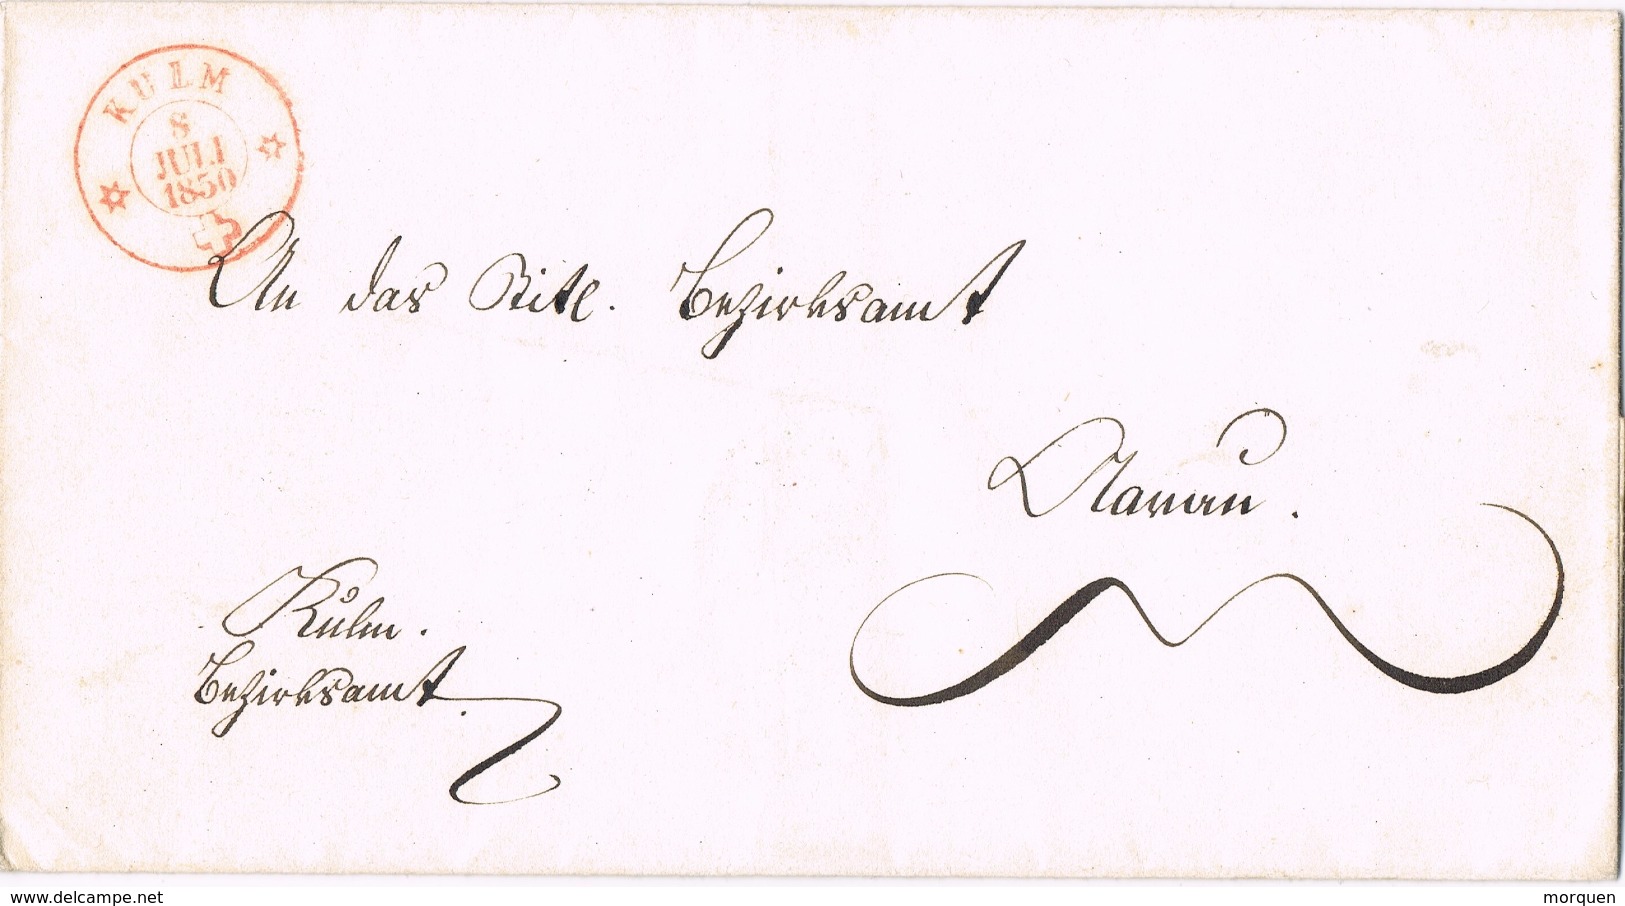 KULM
8
JULI
1850
An das Titl. Bezirksamt
Aarau.
Kulm.
Bezirksamt.
www.delcampe.net
morquen